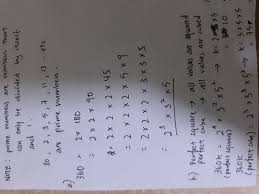 NOTE: prime numbers are numbers that
can only be divided by itself
and 1.
so 2, 3, 5, 7, 11, 13 etc
are prime numbers.
a) 360 = 2 x 180
= 2 x 2 x 90
= 2 x 2 x 2 x 45
= 2 x 2 x 2 x 5 x 9
= 2 x 2 x 2 x 3 x 3 x 5
= 2³ x 3² x 5
b) Perfect square → all values are squared
perfect cube → all values are cubed
360k =
(perfect square)
360k =
(perfect cube)